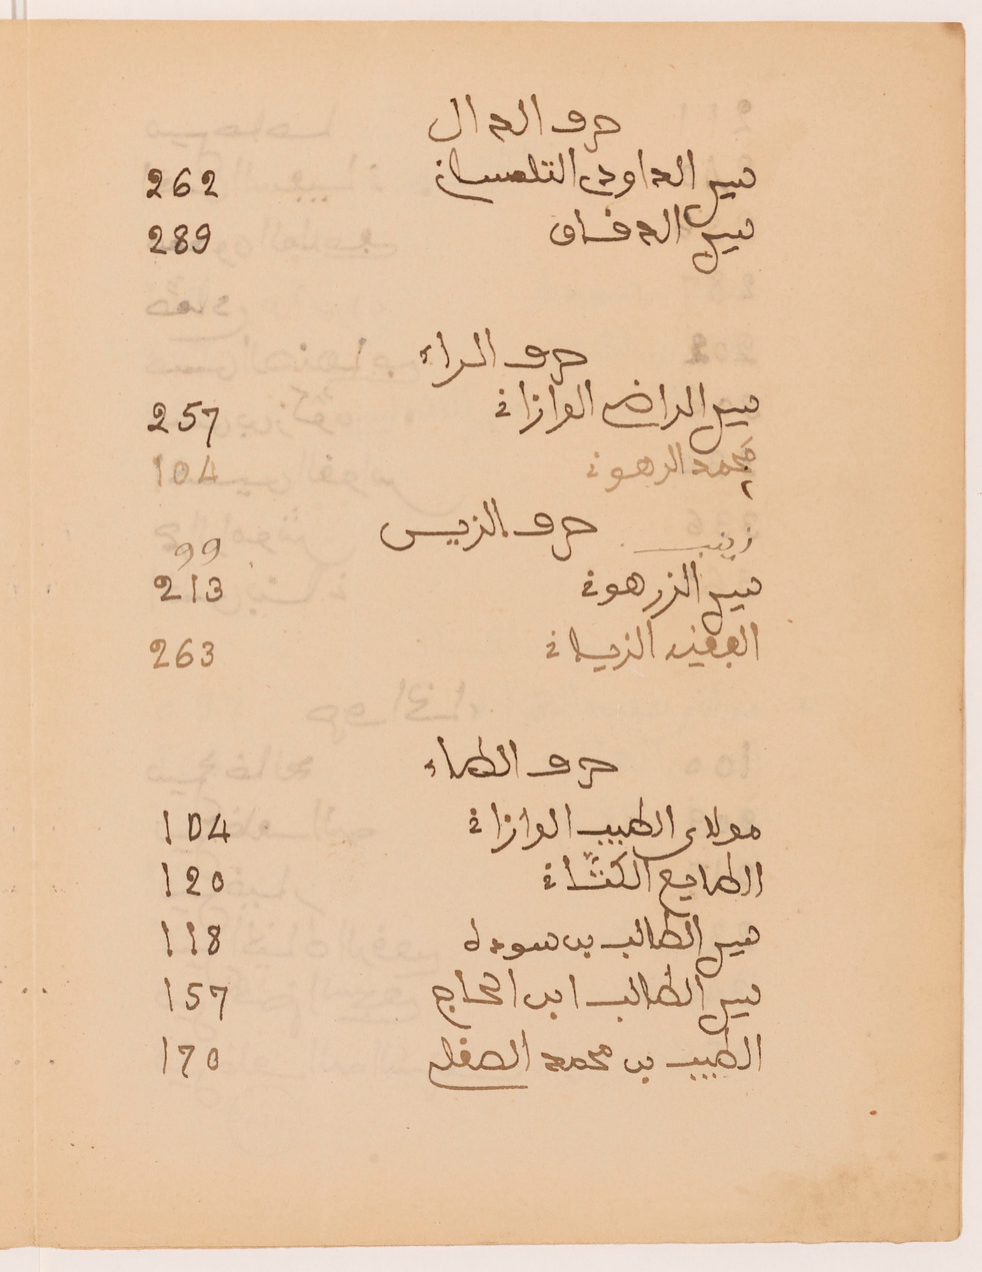 حرف الدال
سيدي الداودي التلمساني 262
سيدي الدقاق 289
حرف الراء
سيدي الراضي الوازاني 257
محمد الرهوني 104
حرف الزيــن
زينب 99
سيدي الزرهوني 213
الفقيه الزياني 263
حرف الطاء
مولاي الطيب الوازاني 104
الطايع الكتاني 120
سيدي الطالب بن سودة 118
سيدي الطالب ابن الحاج 157
الطيب بن محمد الصقلي 170